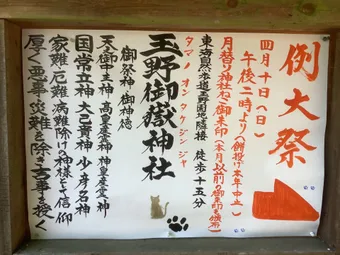 例大祭
四月十日(日)
午後二時より(餅投げ本年中止)
月替り神社ねこ御朱印(本月以前の御朱印も頒布)
東海自然歩道玉野園地隣接 徒歩十五分
タマノ オンタケジンジャ
玉野御嶽神社
御祭神 御神徳
天之御中主神 高皇産霊神 神皇産霊神
国常立神 大己貴神 少彦名神
家難 厄難 病難除けの神様として信仰
厚く 悪事 災難を除き吉事を授く